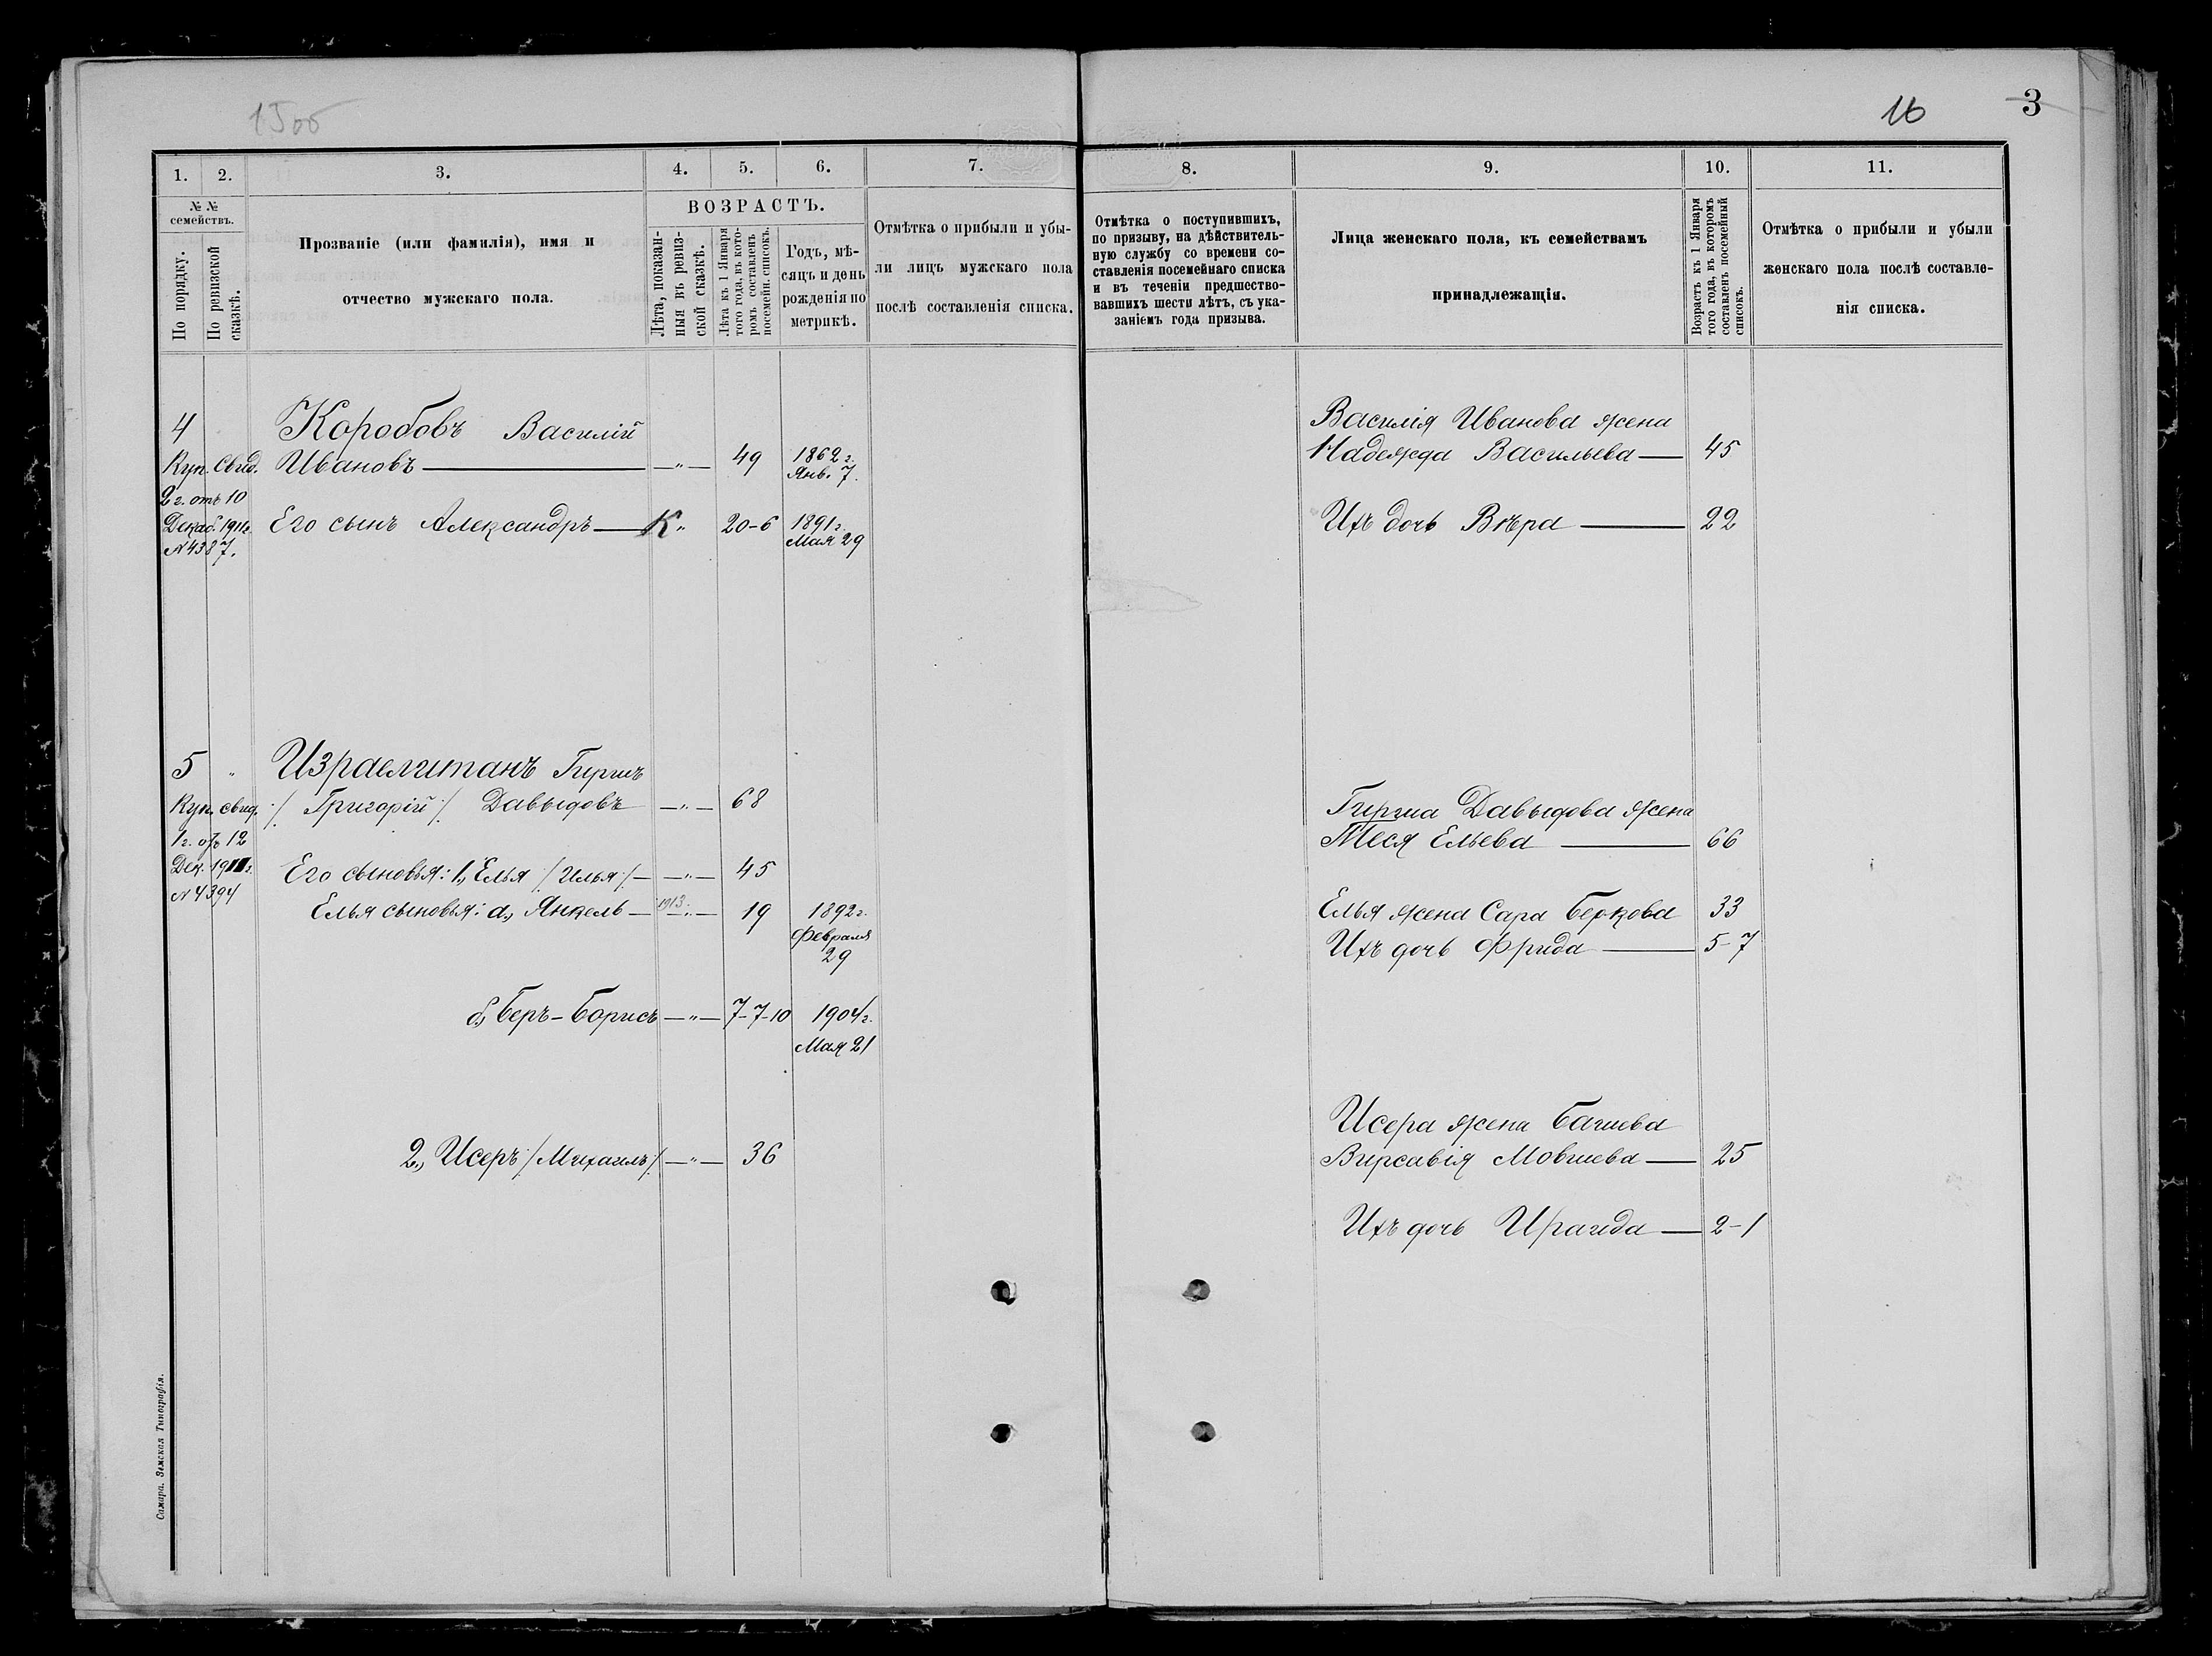 15об
16
3
1.
2.
3.
4.
5.
6.
7.
8.
9.
10.
11.
№ №
семействъ.
По порядку.
По ревизской
сказкѣ.
Прозваніе (или фамилія), имя и
отчество мужскаго пола.
ВОЗРАСТЪ.
Лѣта, показан-
ныя въ ревиз-
ской сказкѣ.
Лѣта къ 1 Января
того года, въ кото-
ромъ составленъ
посемейн. списокъ.
Годъ, мѣ-
сяцъ и день
рожденія по
метрикѣ.
Отмѣтка о прибыли и убы-
ли лицъ мужскаго пола
послѣ составленія списка.
Отмѣтка о поступившихъ,
по призыву, на дѣйствитель-
ную службу со времени со-
ставленія посемейнаго списка
и въ теченіи предшество-
вавшихъ шести лѣтъ, съ ука-
заніемъ года призыва.
Лица женскаго пола, къ семействамъ
принадлежащія.
Возрастъ къ 1 Января
того года, въ которомъ
составленъ посемейный
списокъ.
Отмѣтка о прибыли и убыли
женскаго пола послѣ составле-
нія списка.
4
Куп. Свид.
2 г. отъ 10
Декаб. 1911г.
№ 4387.
Коробовъ Василій
Ивановъ — „ — 49 1862 г.
Янв. 7.
Его сынъ Александръ — К „ 20-6 1891 г.
Мая 29
Василія Иванова жена
Надежда Васильева — 45
Ихъ дочь Вѣра — 22
5 „
Куп. свид.
1 г. отъ 12
Дек. 1911г.
№ 4394
Израелитанъ Гиршъ
/: Григорій :/ Давыдовъ — „ — 68
Его сыновья: 1., Елья /: Илья :/ — „ — 45
Елья сыновья: а., Янкель — 1913. „ — 19 1892 г.
Февраля
29
б., Беръ-Борисъ — „ — 7-7-10 1904 г.
Мая 21
2., Исеръ /: Михаилъ :/ — „ — 36
Гирша Давыдова жена
Теся Ельева — 66
Елья жена Сара Беркова 33
Ихъ дочь Фрида — 5-7
Исера жена Башева
Вирсавія Мовшева — 25
Ихъ дочь Ираида — 2-1
Самара. Земская Типографія.